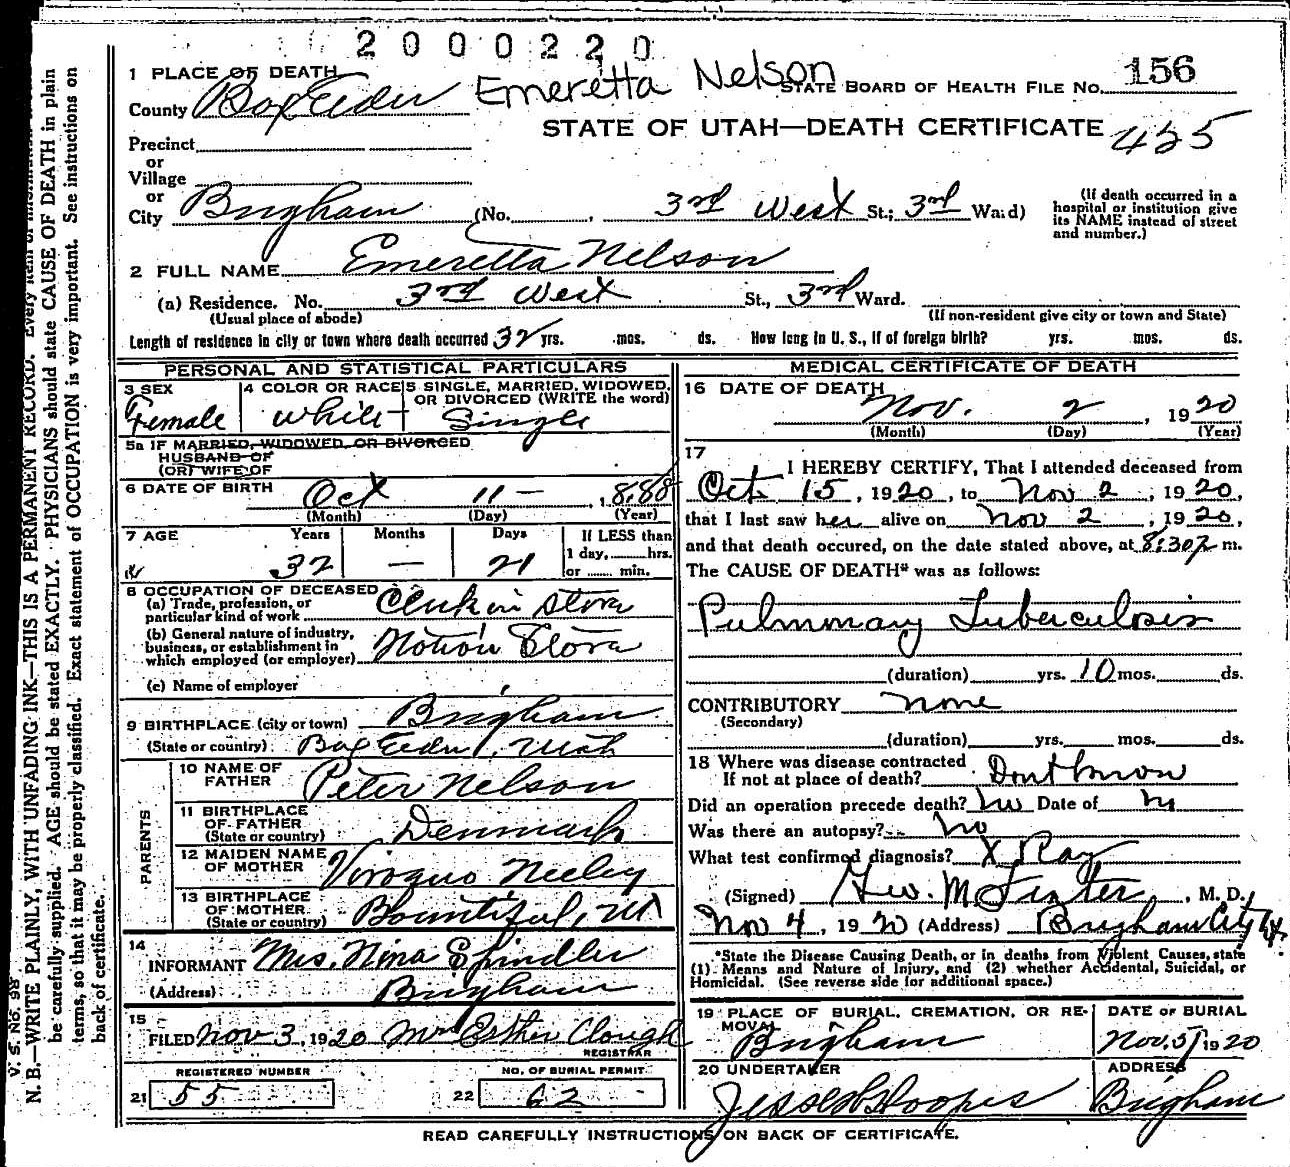 2000220
1 PLACE OF DEATH
Emeretta Nelson
STATE BOARD OF HEALTH FILE NO. 156
County Box Elder
STATE OF UTAH—DEATH CERTIFICATE
425
Precinct
or
Village
or
City Brigham (No. , 3rd West St.; 3rd Ward)
(If death occurred in a
hospital or institution give
its NAME instead of street
and number.)
2 FULL NAME Emeretta Nelson
(a) Residence. No. 3rd West St., 3rd Ward.
(Usual place of abode)
(If non-resident give city or town and State)
Length of residence in city or town where death occurred 32 yrs. mos. ds. How long in U. S., if of foreign birth? yrs. mos. ds.
PERSONAL AND STATISTICAL PARTICULARS
3 SEX
Female
4 COLOR OR RACE
white
5 SINGLE, MARRIED, WIDOWED,
OR DIVORCED (WRITE the word)
Single
5a IF MARRIED, WIDOWED, OR DIVORCED
HUSBAND OF
(OR) WIFE OF
6 DATE OF BIRTH Oct 11 — , 1888
(Month) (Day) (Year)
7 AGE Years Months Days If LESS than
1 day, hrs.
32 — 21 or min.
8 OCCUPATION OF DECEASED
(a) Trade, profession, or
particular kind of work Clerk in Store
(b) General nature of industry,
business, or establishment in
which employed (or employer) Notion Store
(c) Name of employer
9 BIRTHPLACE (city or town) Brigham
(State or country) Box Elder, Utah
PARENTS
10 NAME OF
FATHER Peter Nelson
11 BIRTHPLACE
OF FATHER
(State or country) Denmark
12 MAIDEN NAME
OF MOTHER Viroquo Neeley
13 BIRTHPLACE
OF MOTHER
(State or country) Bountiful, Ut
14
INFORMANT Mrs. Nina Spindler
(Address) Brigham
15
FILED Nov 3, 1920 Mrs Esther Clough
REGISTRAR
REGISTERED NUMBER
21 55
NO. OF BURIAL PERMIT
22 62
MEDICAL CERTIFICATE OF DEATH
16 DATE OF DEATH
Nov. 2 , 1920
(Month) (Day) (Year)
17
I HEREBY CERTIFY, That I attended deceased from
Oct 15, 1920, to Nov 2, 1920,
that I last saw her alive on Nov 2, 1920,
and that death occured, on the date stated above, at 8:30 p m.
The CAUSE OF DEATH* was as follows:
Pulmonary Tuberculosis
(duration) yrs. 10 mos. ds.
CONTRIBUTORY none
(Secondary)
(duration) yrs. mos. ds.
18 Where was disease contracted
If not at place of death? Dont know
Did an operation precede death? no Date of
Was there an autopsy? no
What test confirmed diagnosis? X Ray
(Signed) Geo. M Fister, M. D.
Nov 4, 1920 (Address) Brigham City Ut.
*State the Disease Causing Death, or in deaths from Violent Causes, state
(1) Means and Nature of Injury, and (2) whether Accidental, Suicidal, or
Homicidal. (See reverse side for additional space.)
19 PLACE OF BURIAL, CREMATION, OR RE-
MOVAL
Brigham
DATE OF BURIAL
Nov. 5, 1920
20 UNDERTAKER
ADDRESS
Brigham
READ CAREFULLY INSTRUCTIONS ON BACK OF CERTIFICATE.
V. S. No. 98
N. B.—WRITE PLAINLY, WITH UNFADING INK—THIS IS A PERMANENT RECORD. Every item of information
be carefully supplied. AGE should be stated EXACTLY. PHYSICIANS should state CAUSE OF DEATH in plain
terms, so that it may be properly classified. Exact statement of OCCUPATION is very important. See instructions on
back of certificate.